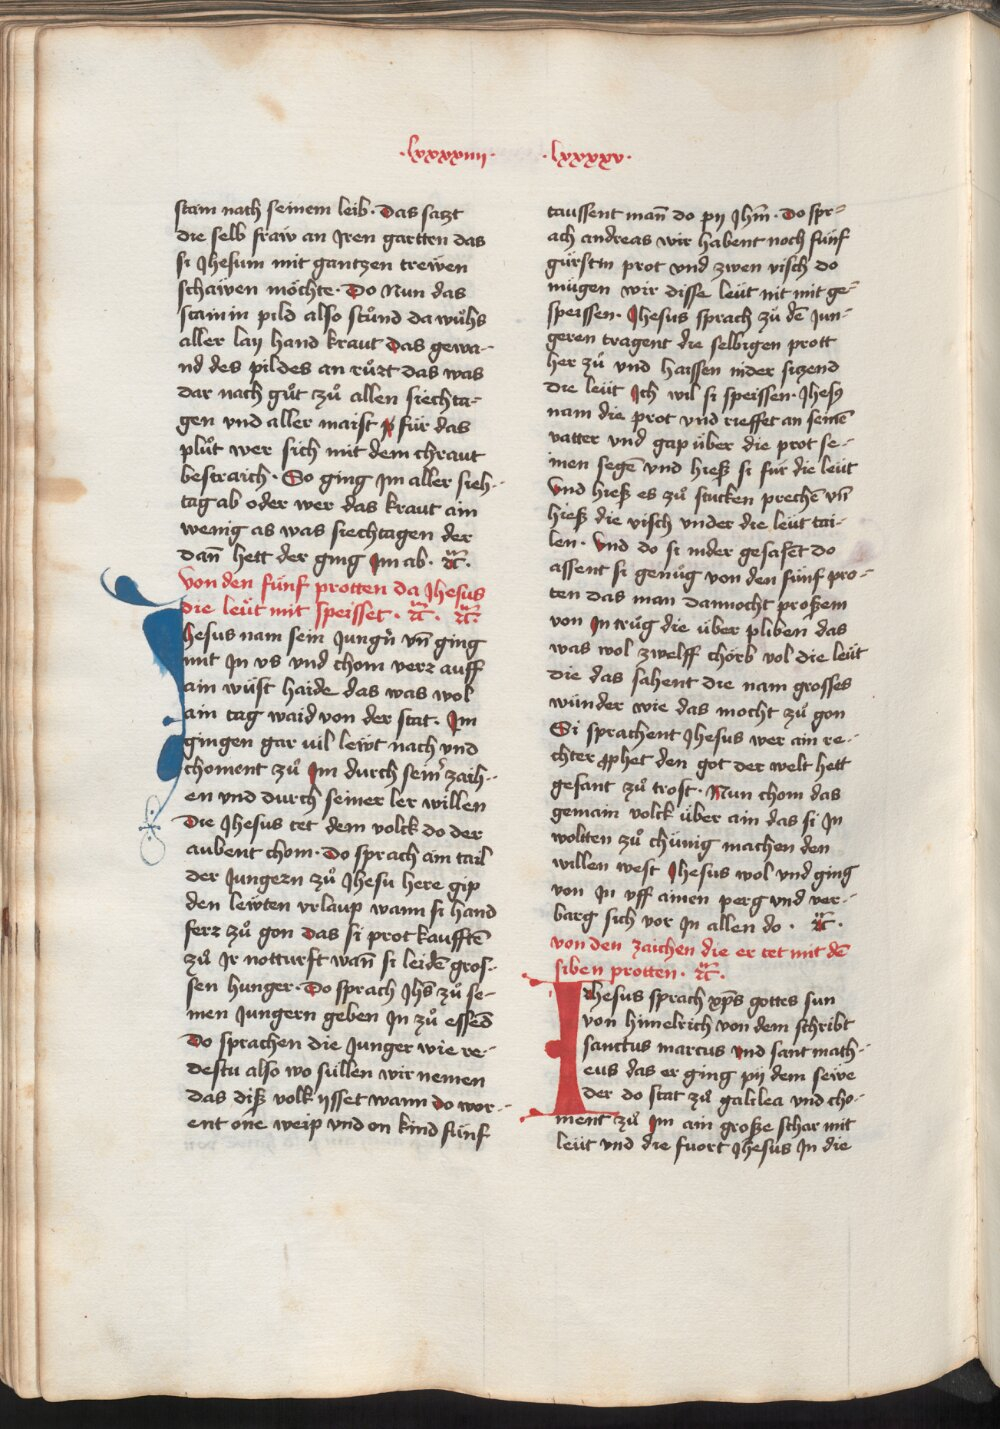 ·lxxxxiiii·
·lxxxxv·
stain nach seinem leib· Das satzt
die selb fraw an Iren gartten das
si Jhesum mit gantzen trewen
schawen möchte· Do Nun das
stainin pild also stůnd da wůhs
aller lay hand kraut Das gewa-
nd des pildes an růrt das was
dar nach gůt zů allen siechta-
gen vnd aller maist für das
plůt wer sich mit dem chraut
bestraich· So ging Im aller sieh-
tag ab oder wer das kraut ain
wenig as was siechtagen der
dañ hett der ging Im ab·
Von den fünf protten da Jhesus
die leüt mit speisset·
Jhesus nam sein Jungn̄ vn̄ ging
mit In vs vnd chom verr auff
ain wüst haide das was wol
ain tag waid von der stat· Im
gingen gar vil lewt nach vnd
choment zů Im durch seiner zaih-
en vnd durch seiner ler willen
Die Jhesus tet dem volck do der
aubent chom· Do sprach ain tail
der Jungern zů Jhesu here gip
den lewten vrlaup wann si hand
ferr zů gon Das si prot kaufftē
zů Ir notturft wan̄ si leidē gros-
sen hunger· Do sprach Jhs̄ zů se-
inen Jungern geben In zů essēd
Do sprachen die Junger wie re-
destu also wo süllen wir nemen
das diß volk ysset wann do wor-
ent one weip vnd on kind fünf
taussent man̄ do py Jhm̄· Do spr-
ach andreas wir habent noch fünf
gürstin prot vnd zwen visch do
mügen wir disse leüt nit mit ge-
speissen· Jhesus sprach zů dē Jun-
geren tragent die selbigen prott
her zů vnd haissen nider sizend
die leüt Ich wil si speissen· Jhesꝰ
nam die prot vnd rieffet an seinē
vatter vnd gap über die prot se-
inen segē vnd hieß si für die leüt
Vnd hieß es zů stucken prechē vn̄
hieß die visch vnder die leüt tai-
len· Vnd do si nider gesasēt do
assent si genůg von den fünf pro-
ten das man dannocht proßem
von In trůg die über pliben das
was wol zwelff chörb vol die leüt
die das sahent die nam grosses
wünder wie das mocht zů gon
Si sprachent Jhesus wer ain re-
chter ꝓphet den got der welt hett
gesant zů trost· Nun chom das
gemain volck über ain das si In
woltten zů chünig machen den
willen west Jhesus wol vnd ging
von In vff ainen perg vnd ver-
barg sich vor In allen do·
von den zaichen die er tet mit dē
siben protten·
Ihesus sprach xp̄s gottes sun
von himelrich von dem schribt
sanctus marcus vnd sant math-
eus das er ging pij dem sewe
der do stat zů galilea vnd cho-
ment zů Im ain große schar mit
leüt vnd die fuort Jhesus In die